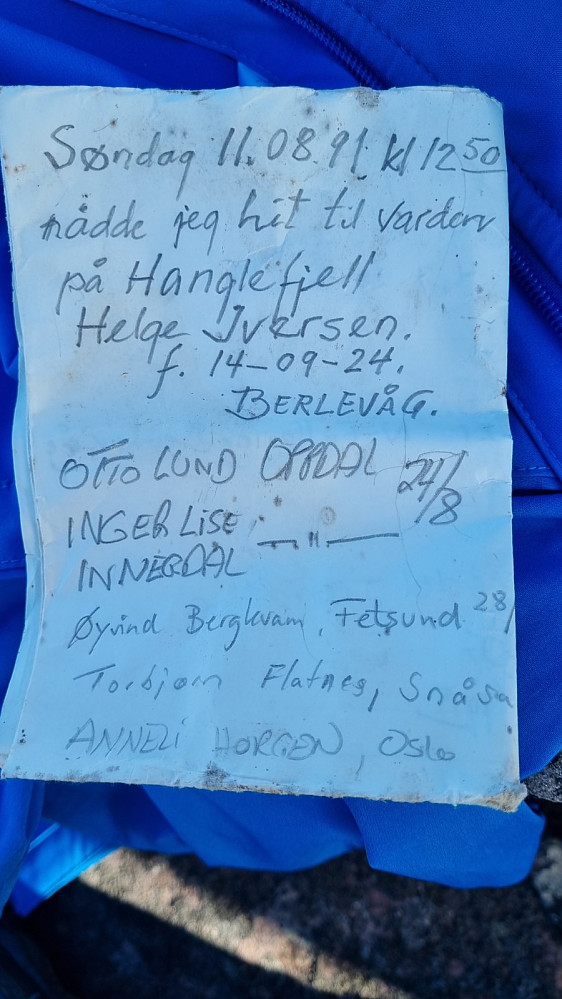 Søndag 11.08.91 kl 12 50
nådde jeg hit til varden
på Hanglefjell
Helge Iversen.
f. 14-09-24.
BERLEVÅG.
OTTO LUND OPPDAL 24/8
INGER LISE — " —
INNERDAL
Øyvind Bergkvam, Fetsund 28/
Torbjørn Flatnes, Snåsa
ANNELI HORGEN, Oslo